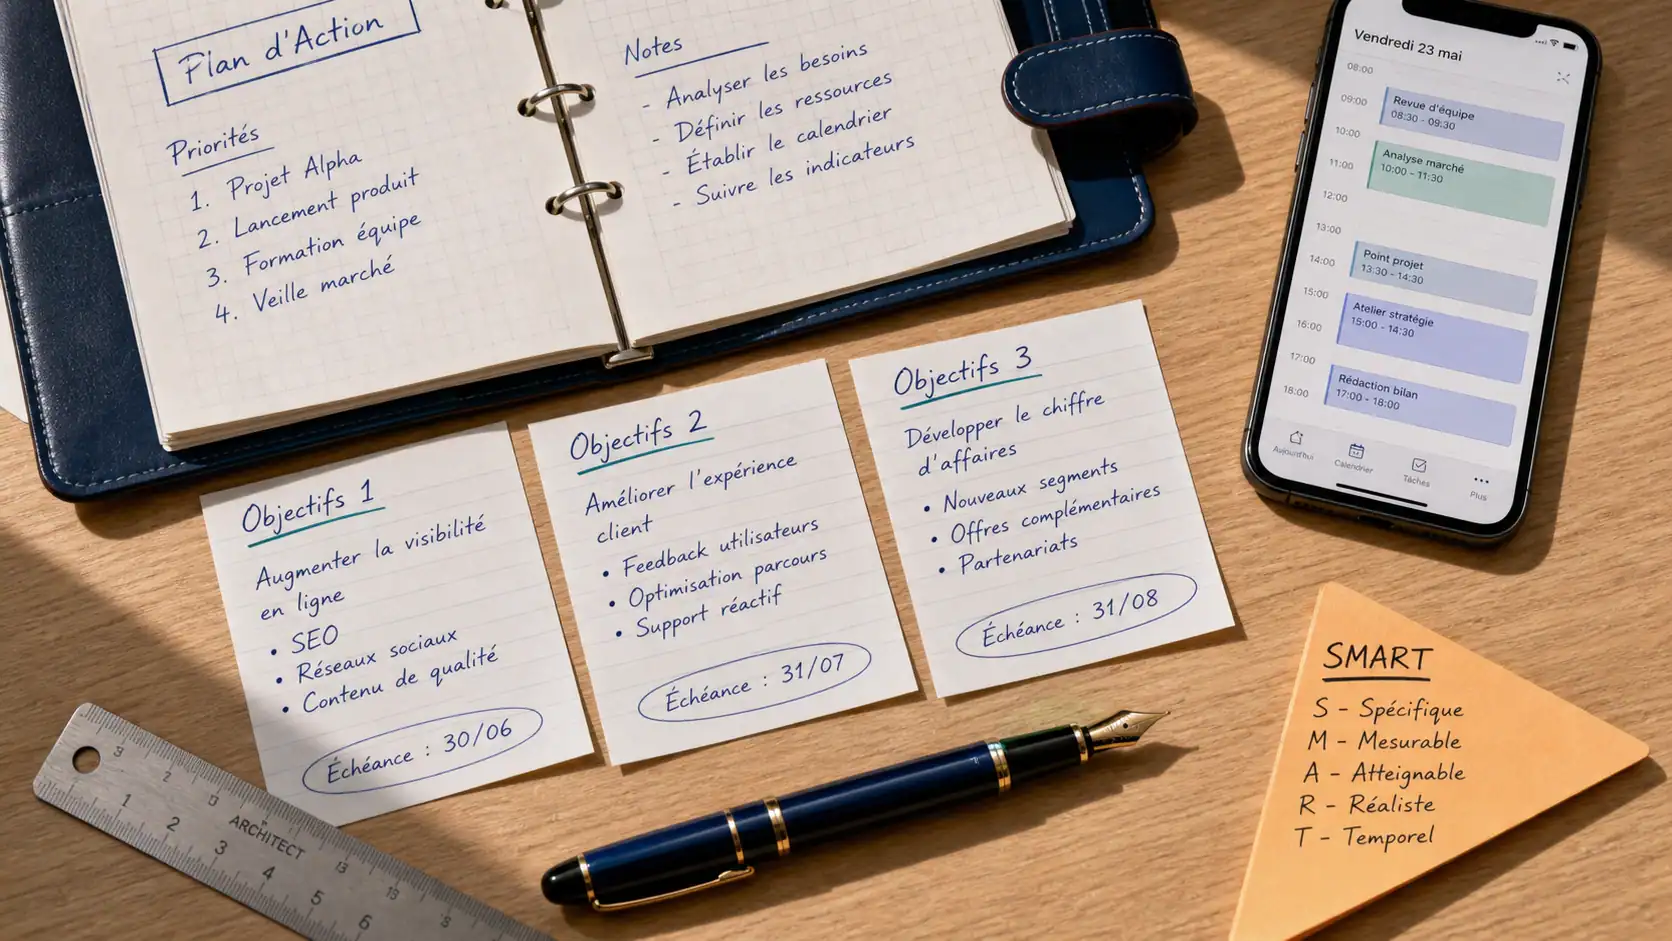 Plan d'Action
Priorités
1. Projet Alpha
2. Lancement produit
3. Formation équipe
4. Veille marché
Notes
- Analyser les besoins
- Définir les ressources
- Établir le calendrier
- Suivre les indicateurs
Vendredi 23 mai
08:00
09:00
10:00
11:00
12:00
13:00
14:00
15:00
16:00
17:00
18:00
Revue d'équipe
08:30 - 09:30
Analyse marché
10:00 - 11:30
Point projet
13:30 - 14:30
Atelier stratégie
15:00 - 14:30
Rédaction bilan
17:00 - 18:00
Aujourd'hui
Calendrier
Tâches
Plus
Objectifs 1
Augmenter la visibilité
en ligne
• SEO
• Réseaux sociaux
• Contenu de qualité
Échéance : 30/06
Objectifs 2
Améliorer l'expérience
client
• Feedback utilisateurs
• Optimisation parcours
• Support réactif
Échéance : 31/07
Objectifs 3
Développer le chiffre
d'affaires
• Nouveaux segments
• Offres complémentaires
• Partenariats
Échéance : 31/08
SMART
S - Spécifique
M - Mesurable
A - Atteignable
R - Réaliste
T - Temporel
ARCHITECT
1 2 3 4 5 6